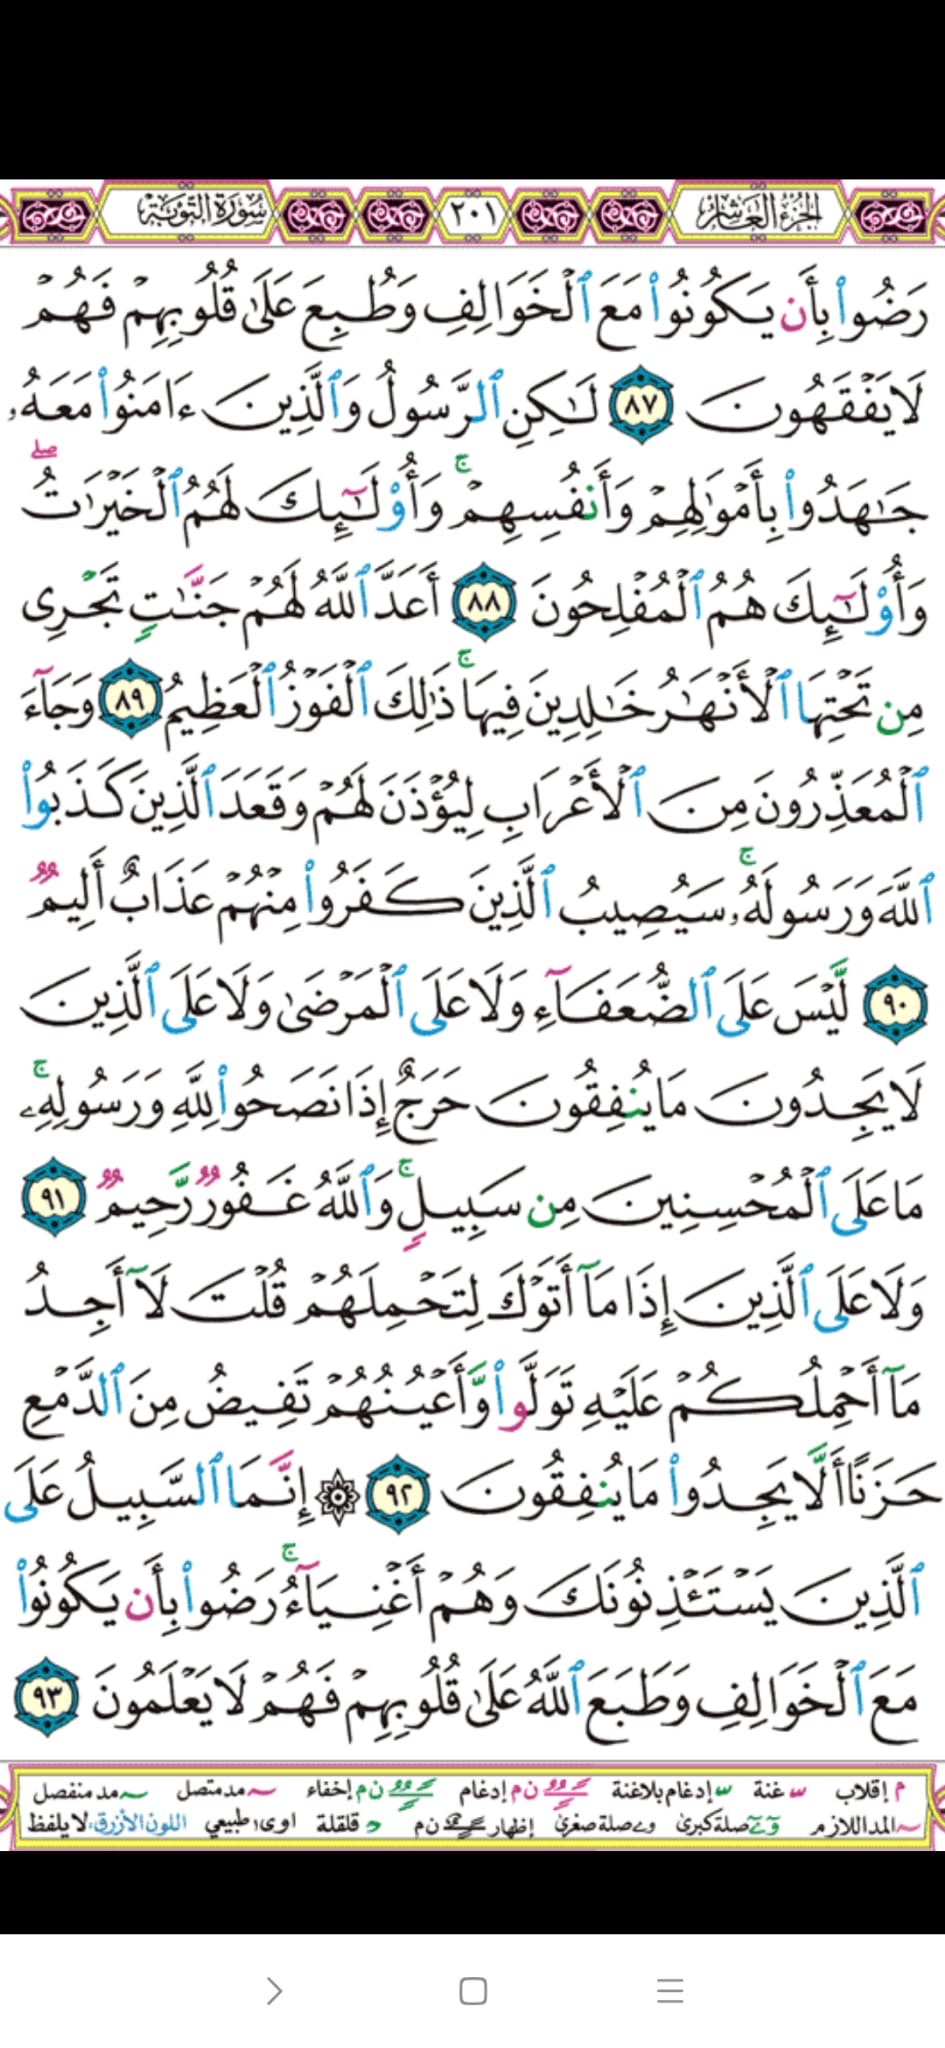 الجزء العاشر ٢٠١ سورة التوبة
رَضُوا۟ بِأَن يَكُونُوا۟ مَعَ ٱلْخَوَالِفِ وَطُبِعَ عَلَىٰ قُلُوبِهِمْ فَهُمْ
لَا يَفْقَهُونَ ٨٧ لَـٰكِنِ ٱلرَّسُولُ وَٱلَّذِينَ ءَامَنُوا۟ مَعَهُۥ
جَـٰهَدُوا۟ بِأَمْوَٰلِهِمْ وَأَنفُسِهِمْ ۚ وَأُو۟لَـٰٓئِكَ لَهُمُ ٱلْخَيْرَٰتُ ۖ
وَأُو۟لَـٰٓئِكَ هُمُ ٱلْمُفْلِحُونَ ٨٨ أَعَدَّ ٱللَّهُ لَهُمْ جَنَّـٰتٍ تَجْرِى
مِن تَحْتِهَا ٱلْأَنْهَـٰرُ خَـٰلِدِينَ فِيهَا ۚ ذَٰلِكَ ٱلْفَوْزُ ٱلْعَظِيمُ ٨٩ وَجَآءَ
ٱلْمُعَذِّرُونَ مِنَ ٱلْأَعْرَابِ لِيُؤْذَنَ لَهُمْ وَقَعَدَ ٱلَّذِينَ كَذَبُوا۟
ٱللَّهَ وَرَسُولَهُۥ ۚ سَيُصِيبُ ٱلَّذِينَ كَفَرُوا۟ مِنْهُمْ عَذَابٌ أَلِيمٌ
٩٠ لَّيْسَ عَلَى ٱلضُّعَفَآءِ وَلَا عَلَى ٱلْمَرْضَىٰ وَلَا عَلَى ٱلَّذِينَ
لَا يَجِدُونَ مَا يُنفِقُونَ حَرَجٌ إِذَا نَصَحُوا۟ لِلَّهِ وَرَسُولِهِۦ ۚ
مَا عَلَى ٱلْمُحْسِنِينَ مِن سَبِيلٍ ۚ وَٱللَّهُ غَفُورٌ رَّحِيمٌ ٩١
وَلَا عَلَى ٱلَّذِينَ إِذَا مَآ أَتَوْكَ لِتَحْمِلَهُمْ قُلْتَ لَآ أَجِدُ
مَآ أَحْمِلُكُمْ عَلَيْهِ تَوَلَّوا۟ وَّأَعْيُنُهُمْ تَفِيضُ مِنَ ٱلدَّمْعِ
حَزَنًا أَلَّا يَجِدُوا۟ مَا يُنفِقُونَ ٩٢ ۞ إِنَّمَا ٱلسَّبِيلُ عَلَى
ٱلَّذِينَ يَسْتَـْٔذِنُونَكَ وَهُمْ أَغْنِيَآءُ ۚ رَضُوا۟ بِأَن يَكُونُوا۟
مَعَ ٱلْخَوَالِفِ وَطَبَعَ ٱللَّهُ عَلَىٰ قُلُوبِهِمْ فَهُمْ لَا يَعْلَمُونَ ٩٣
م إقلاب غنة إدغام بلاغنة ن م إدغام ن م إخفاء مد متصل مد منفصل
المد اللازم صلة كبرى صلة صغرى إظهار ن م قلقلة اوى طبيعي اللون الأزرق: لا يلفظ